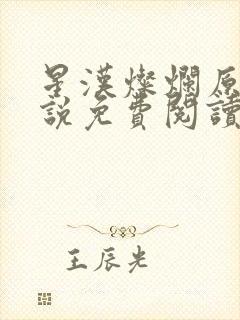 星漢燦爛原
說免費閱讀
王辰光